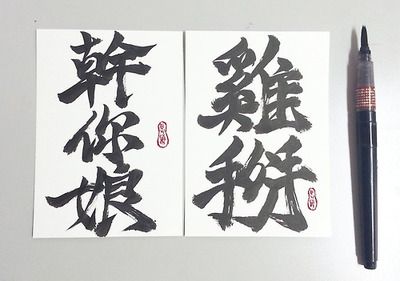 幹你娘
雞掰